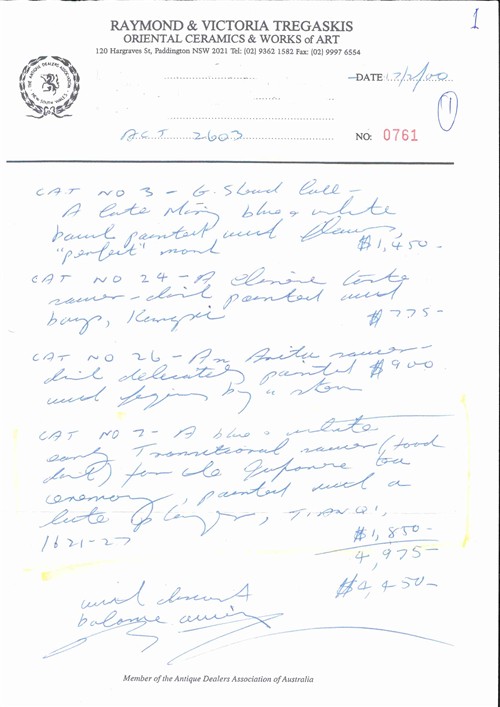 1
RAYMOND & VICTORIA TREGASKIS
ORIENTAL CERAMICS & WORKS of ART
120 Hargraves St, Paddington NSW 2021 Tel: (02) 9362 1582 Fax: (02) 9997 6554
THE ANTIQUE DEALERS ASSOCIATION
NEW SOUTH WALES
DATE 17/2/00
1
A.C.T 2603
NO: 0761
CAT NO 3 - G. Coll -
A late Ming blue & white
bowl painted with flowers,
"perfect" mark $1,450-
CAT NO 24 - A Chinese taste
saucer-dish painted with
boys, Kangxi $775-
CAT NO 26 - An Arita saucer-
dish delicately painted $900
with figures by a
CAT NO 7 - A blue & white
early Transitional saucer (food
dish) for the Japanese tea
ceremony, painted with a
lute player, TIANQI,
1621-27 $1,850-
4,975-
with discount $4,450-
balance owing
Member of the Antique Dealers Association of Australia